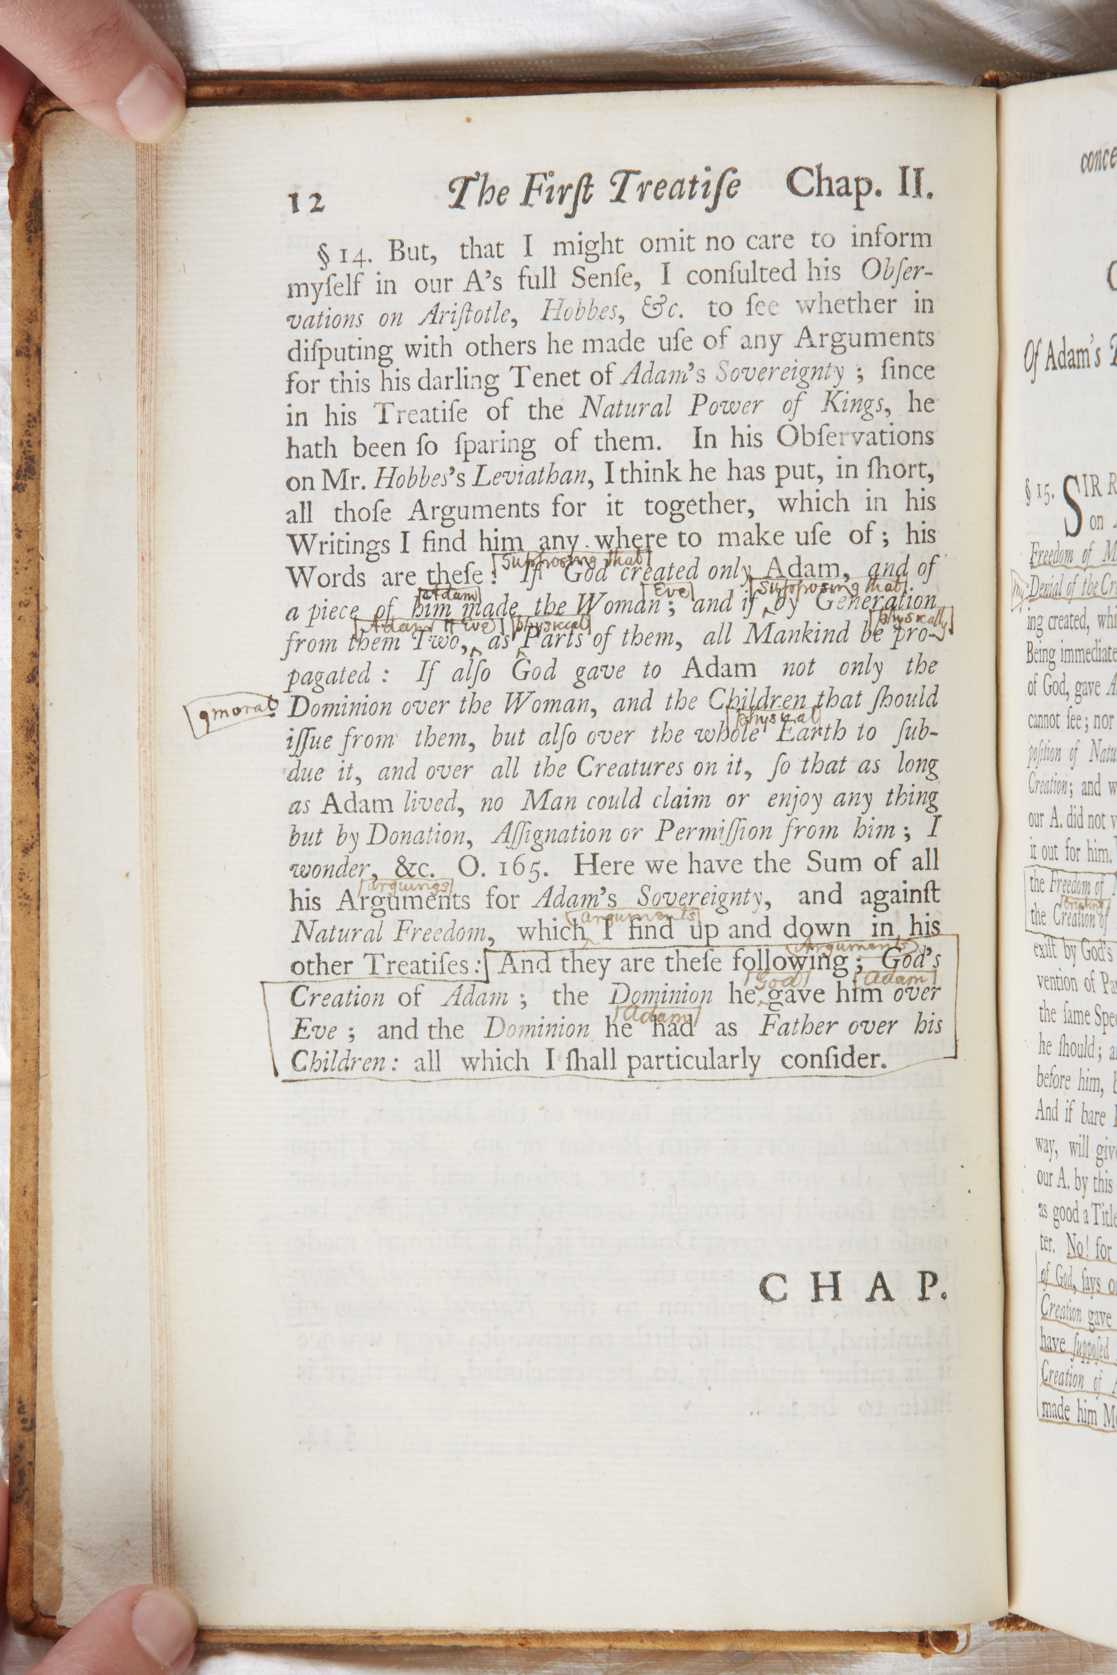 12 The Firſt Treatiſe Chap. II.
§ 14. But, that I might omit no care to inform
myſelf in our A's full Senſe, I conſulted his Obſer-
vations on Ariſtotle, Hobbes, &c. to ſee whether in
diſputing with others he made uſe of any Arguments
for this his darling Tenet of Adam's Sovereignty ; ſince
in his Treatiſe of the Natural Power of Kings, he
hath been ſo ſparing of them. In his Obſervations
on Mr. Hobbes's Leviathan, I think he has put, in ſhort,
all thoſe Arguments for it together, which in his
Writings I find him any where to make uſe of ; his
Supposing that
Words are theſe : If God created only Adam, and of
Adam Eve Supposing that
a piece of him made the Woman ; and if by Generation
Adam & Eve physical physically
from them Two, as Parts of them, all Mankind be pro-
pagated : If alſo God gave to Adam not only the
moral
Dominion over the Woman, and the Children that ſhould
physical
iſſue from them, but alſo over the whole Earth to ſub-
due it, and over all the Creatures on it, ſo that as long
as Adam lived, no Man could claim or enjoy any thing
but by Donation, Aſſignation or Permiſſion from him ; I
wonder, &c. O. 165. Here we have the Sum of all
arguings
his Arguments for Adam's Sovereignty, and againſt
arguments
Natural Freedom, which I find up and down in his
Arguments
other Treatiſes : And they are theſe following ; God's
God Adam
Creation of Adam ; the Dominion he gave him over
Adam
Eve ; and the Dominion he had as Father over his
Children : all which I ſhall particularly conſider.
CHAP.
conce
Of Adam's
§ 15. SIR R
on
Freedom of M
Denial of the Cr
ing created, wh
Being immediate
of God, gave A
cannot ſee ; nor
poſition of Natu
Creation ; and w
our A. did not v
it out for him.
the Freedom of
the Creation of
exiſt by God's
vention of Pa
the ſame Spec
he ſhould ; a
before him, b
And if bare
way, will give
our A. by this
as good a Title
ter. No! for
of God, ſays o
Creation gave
have ſuppoſed
Creation of A
made him Mo